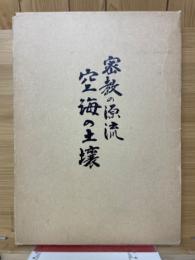 密教の源流
空海の土壌